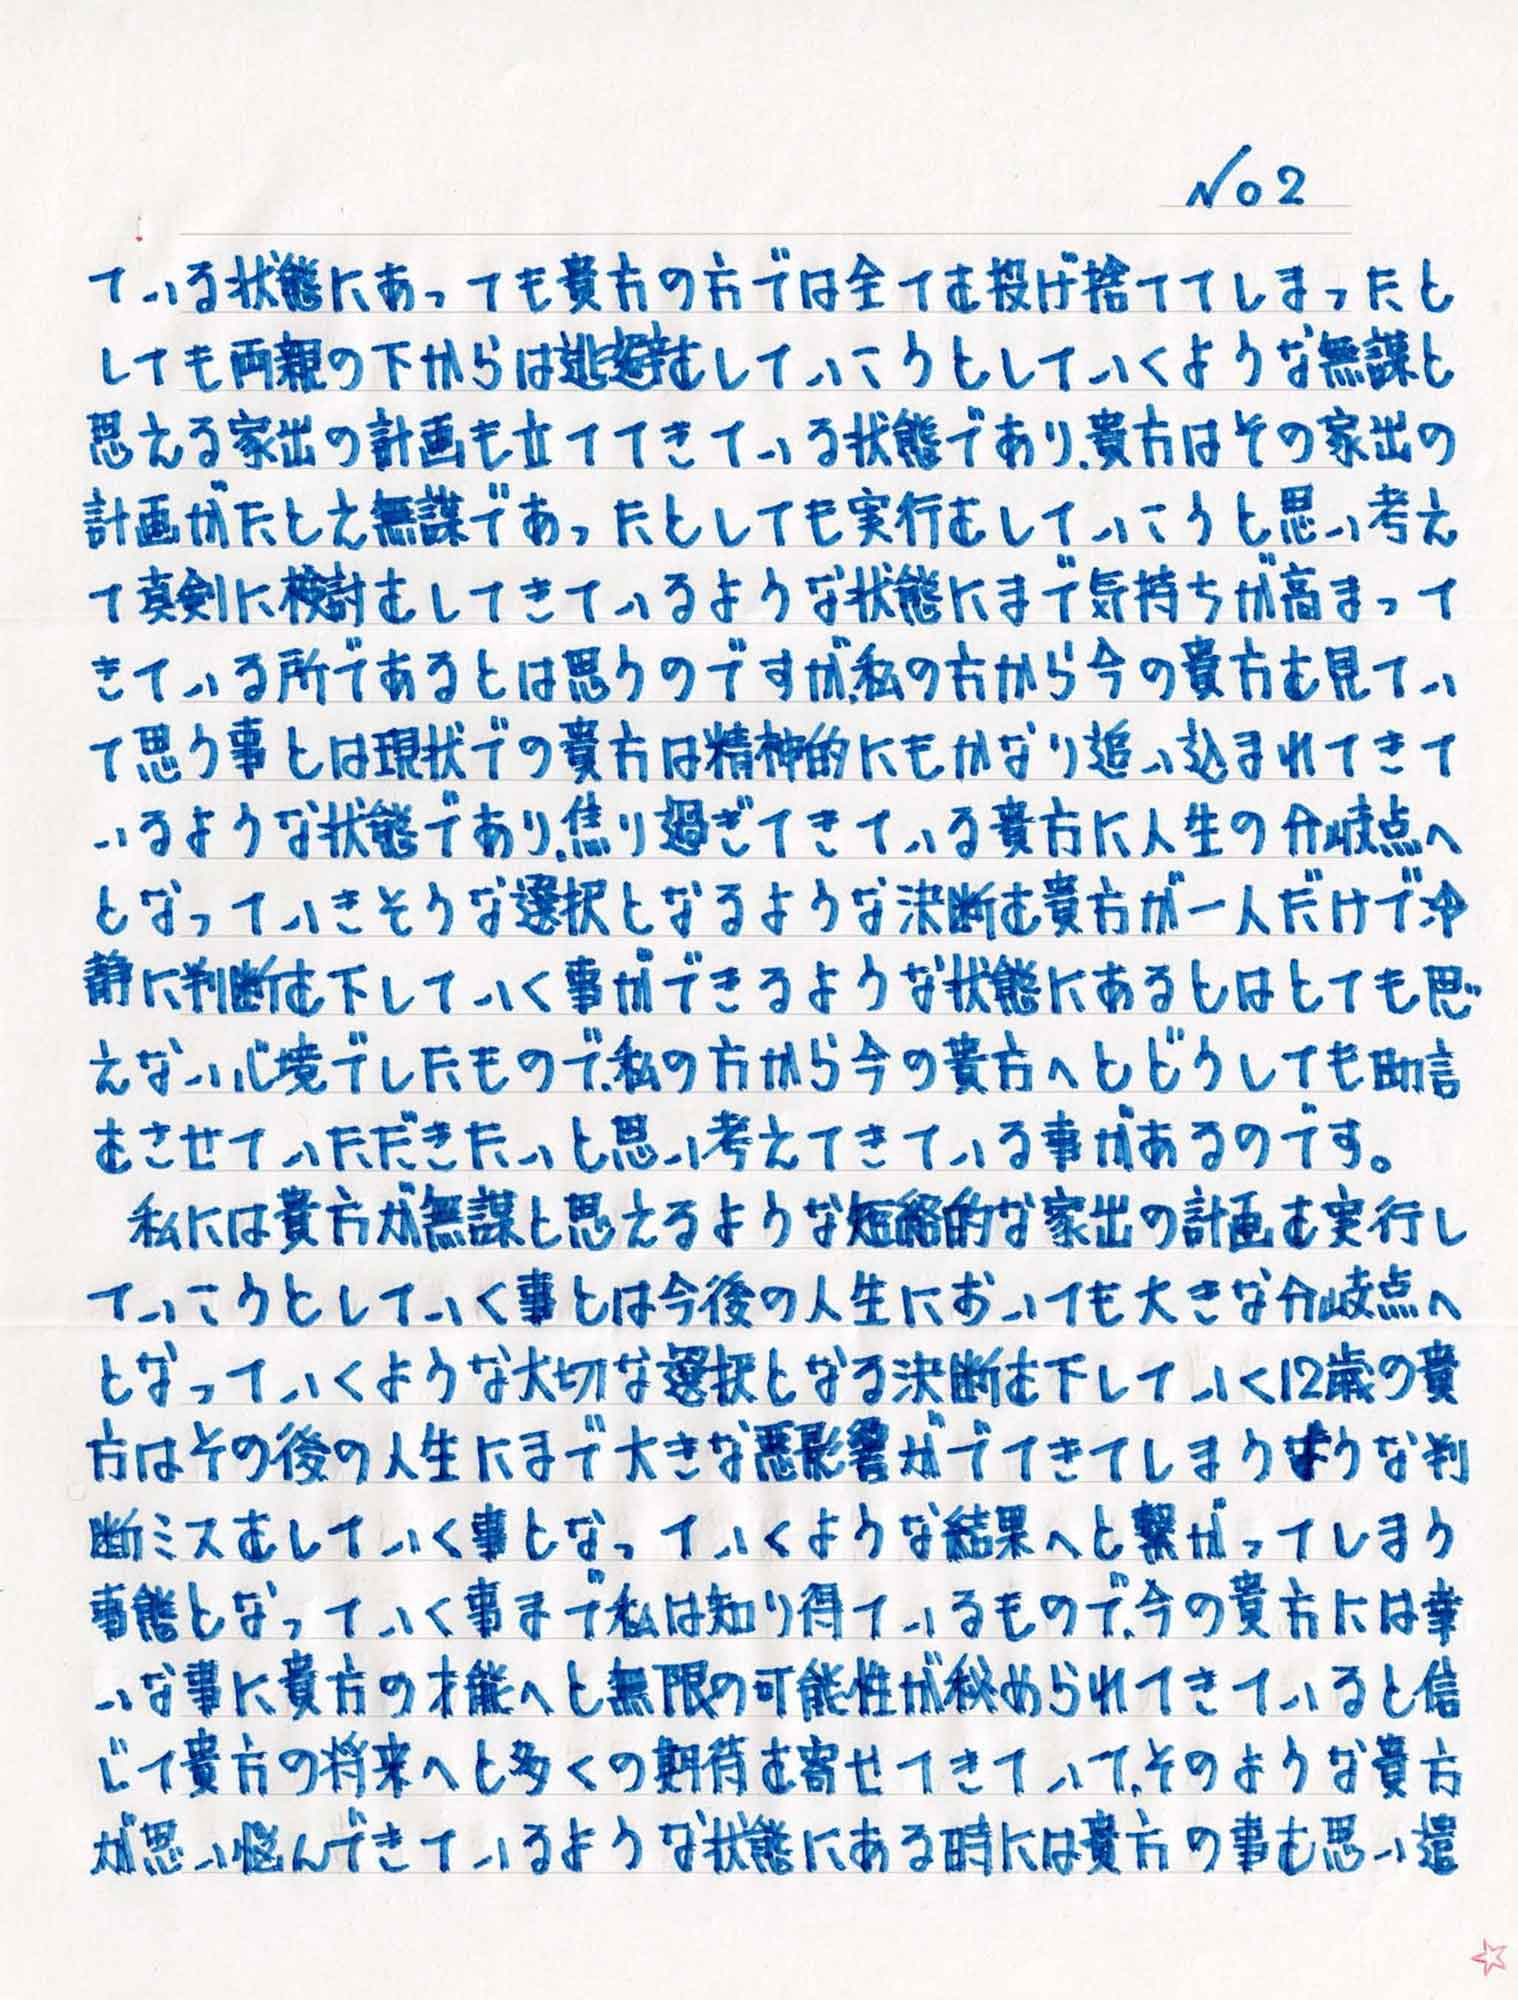 No2
ている状態にあっても貴方の方では全てを投げ捨ててしまったと
しても両親の下からは逃避をしていこうとしていくような無謀と
思える家出の計画も立ててきている状態であり、貴方はその家出の
計画がたとえ無謀であったとしても実行をしていこうと思い考え
て真剣に検討をしてきているような状態にまで気持ちが高まって
きている所であるとは思うのですが、私の方から今の貴方を見てい
て思う事とは現状での貴方は精神的にもかなり追い込まれてきて
いるような状態であり、焦り過ぎてきている貴方に人生の分岐点へ
となっていきそうな選択となるような決断を貴方が一人だけで冷
静に判断を下していく事ができるような状態にあるとはとても思
えない心境でしたもので、私の方から今の貴方へとどうしても助言
をさせていただきたいと思い考えてきている事があるのです。
私には貴方が無謀と思えるような短絡的な家出の計画を実行し
ていこうとしていく事とは今後の人生においても大きな分岐点へ
となっていくような大切な選択となる決断を下していく12歳の貴
方はその後の人生にまで大きな悪影響がでてきてしまうような判
断ミスをしていく事となっていくような結果へと繋がってしまう
事態となっていく事まで私は知り得ているもので、今の貴方には幸
いな事に貴方の才能へと無限の可能性が秘められてきていると信
じて貴方の将来へと多くの期待を寄せてきていて、そのような貴方
が思い悩んできているような状態にある時には貴方の事を思い遣